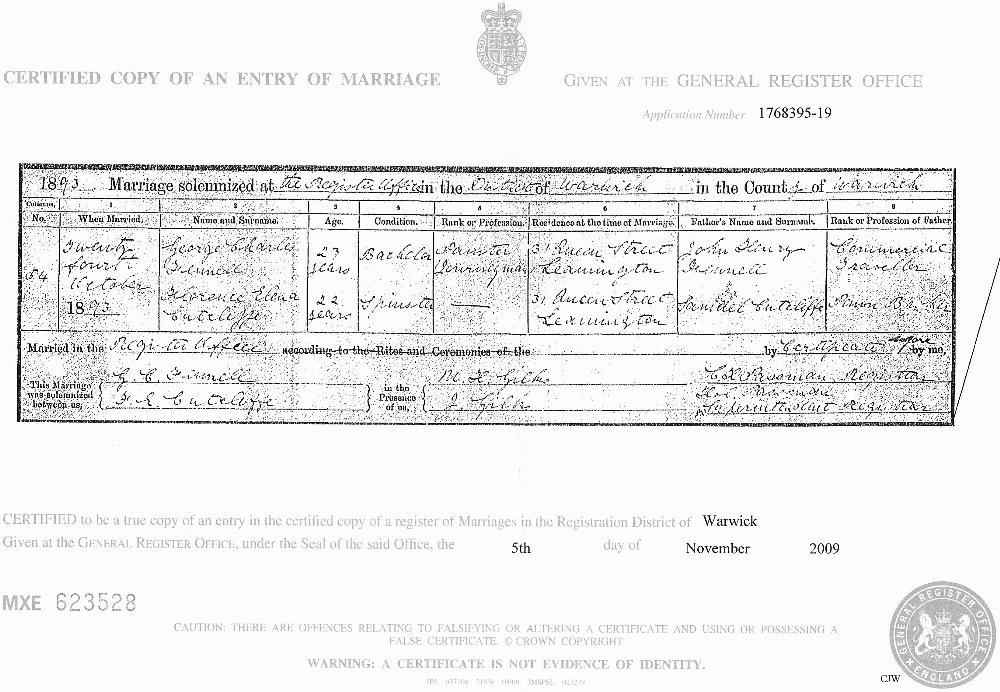 CERTIFIED COPY OF AN ENTRY OF MARRIAGE
GIVEN AT THE GENERAL REGISTER OFFICE
Application Number 1768395-19
1893. Marriage solemnized at the Register Office in the District of Warwick in the County of Warwick
Columns. 1 2 3 4 5 6 7 8
No. When Married. Name and Surname. Age. Condition. Rank or Profession. Residence at the time of Marriage. Father's Name and Surname. Rank or Profession of Father.
54
Twenty fourth October 1893
George Charles
23 years
Bachelor
Painter Journeyman
31 Queen Street Leamington
John Henry
Commercial Traveller
Florence Elena Cutcliffe
22 years
Spinster
31 Queen Street Leamington
Samuel Cutcliffe
Married in the Register Office according to the Rites and Ceremonies of the by Certificate before by me,
This Marriage was solemnized between us,
G. C.
F. E. Cutcliffe
in the Presence of us,
Registrar
Superintendent Registrar
CERTIFIED to be a true copy of an entry in the certified copy of a register of Marriages in the Registration District of Warwick
Given at the GENERAL REGISTER OFFICE, under the Seal of the said Office, the 5th day of November 2009
MXE 623528
CAUTION: THERE ARE OFFENCES RELATING TO FALSIFYING OR ALTERING A CERTIFICATE AND USING OR POSSESSING A
FALSE CERTIFICATE. © CROWN COPYRIGHT
WARNING: A CERTIFICATE IS NOT EVIDENCE OF IDENTITY.
CJW
GENERAL REGISTER OFFICE
ENGLAND